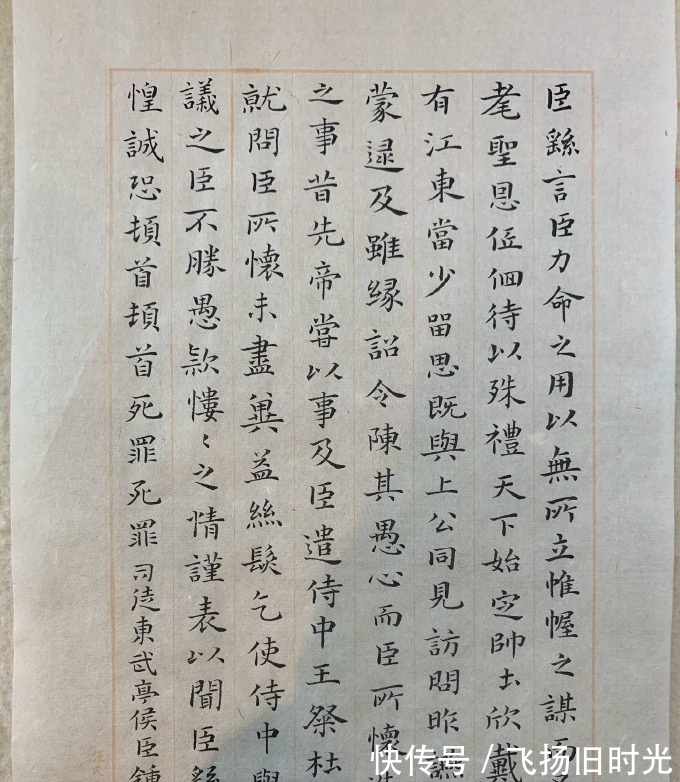 臣繇言臣力命之用以無所立惟幄之謀而
耄聖恩俖佪待以殊禮天下始定帥土欣戴
有江東當少畱思既與上公同見訪問昨
蒙逮及雖緣詔令陳其愚心而臣所懷
之事昔先帝甞以事及臣遣侍中王粲杜
就問臣所懷未盡兾益絲髮乞使侍中與
議之臣不勝愚款慺〻之情謹表以聞臣繇
惶誠恐頓首頓首死罪死罪司徒東武亭侯臣鍾
快传号 / 飞扬旧时光